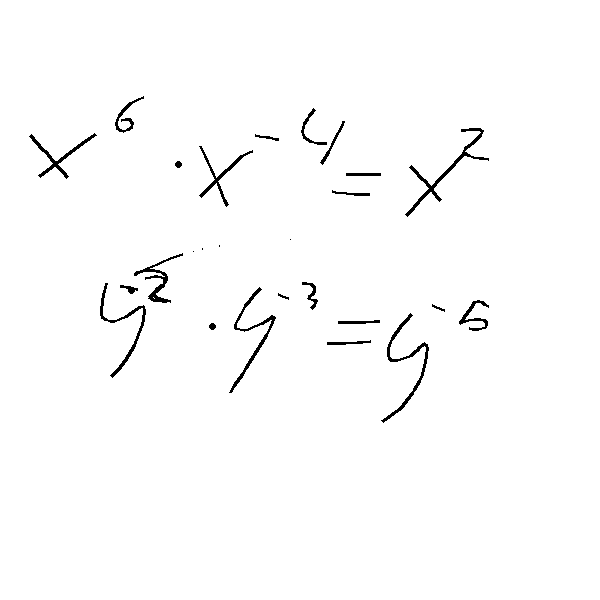 x⁶ · x⁻⁴ = x²
y⁻² · y⁻³ = y⁻⁵